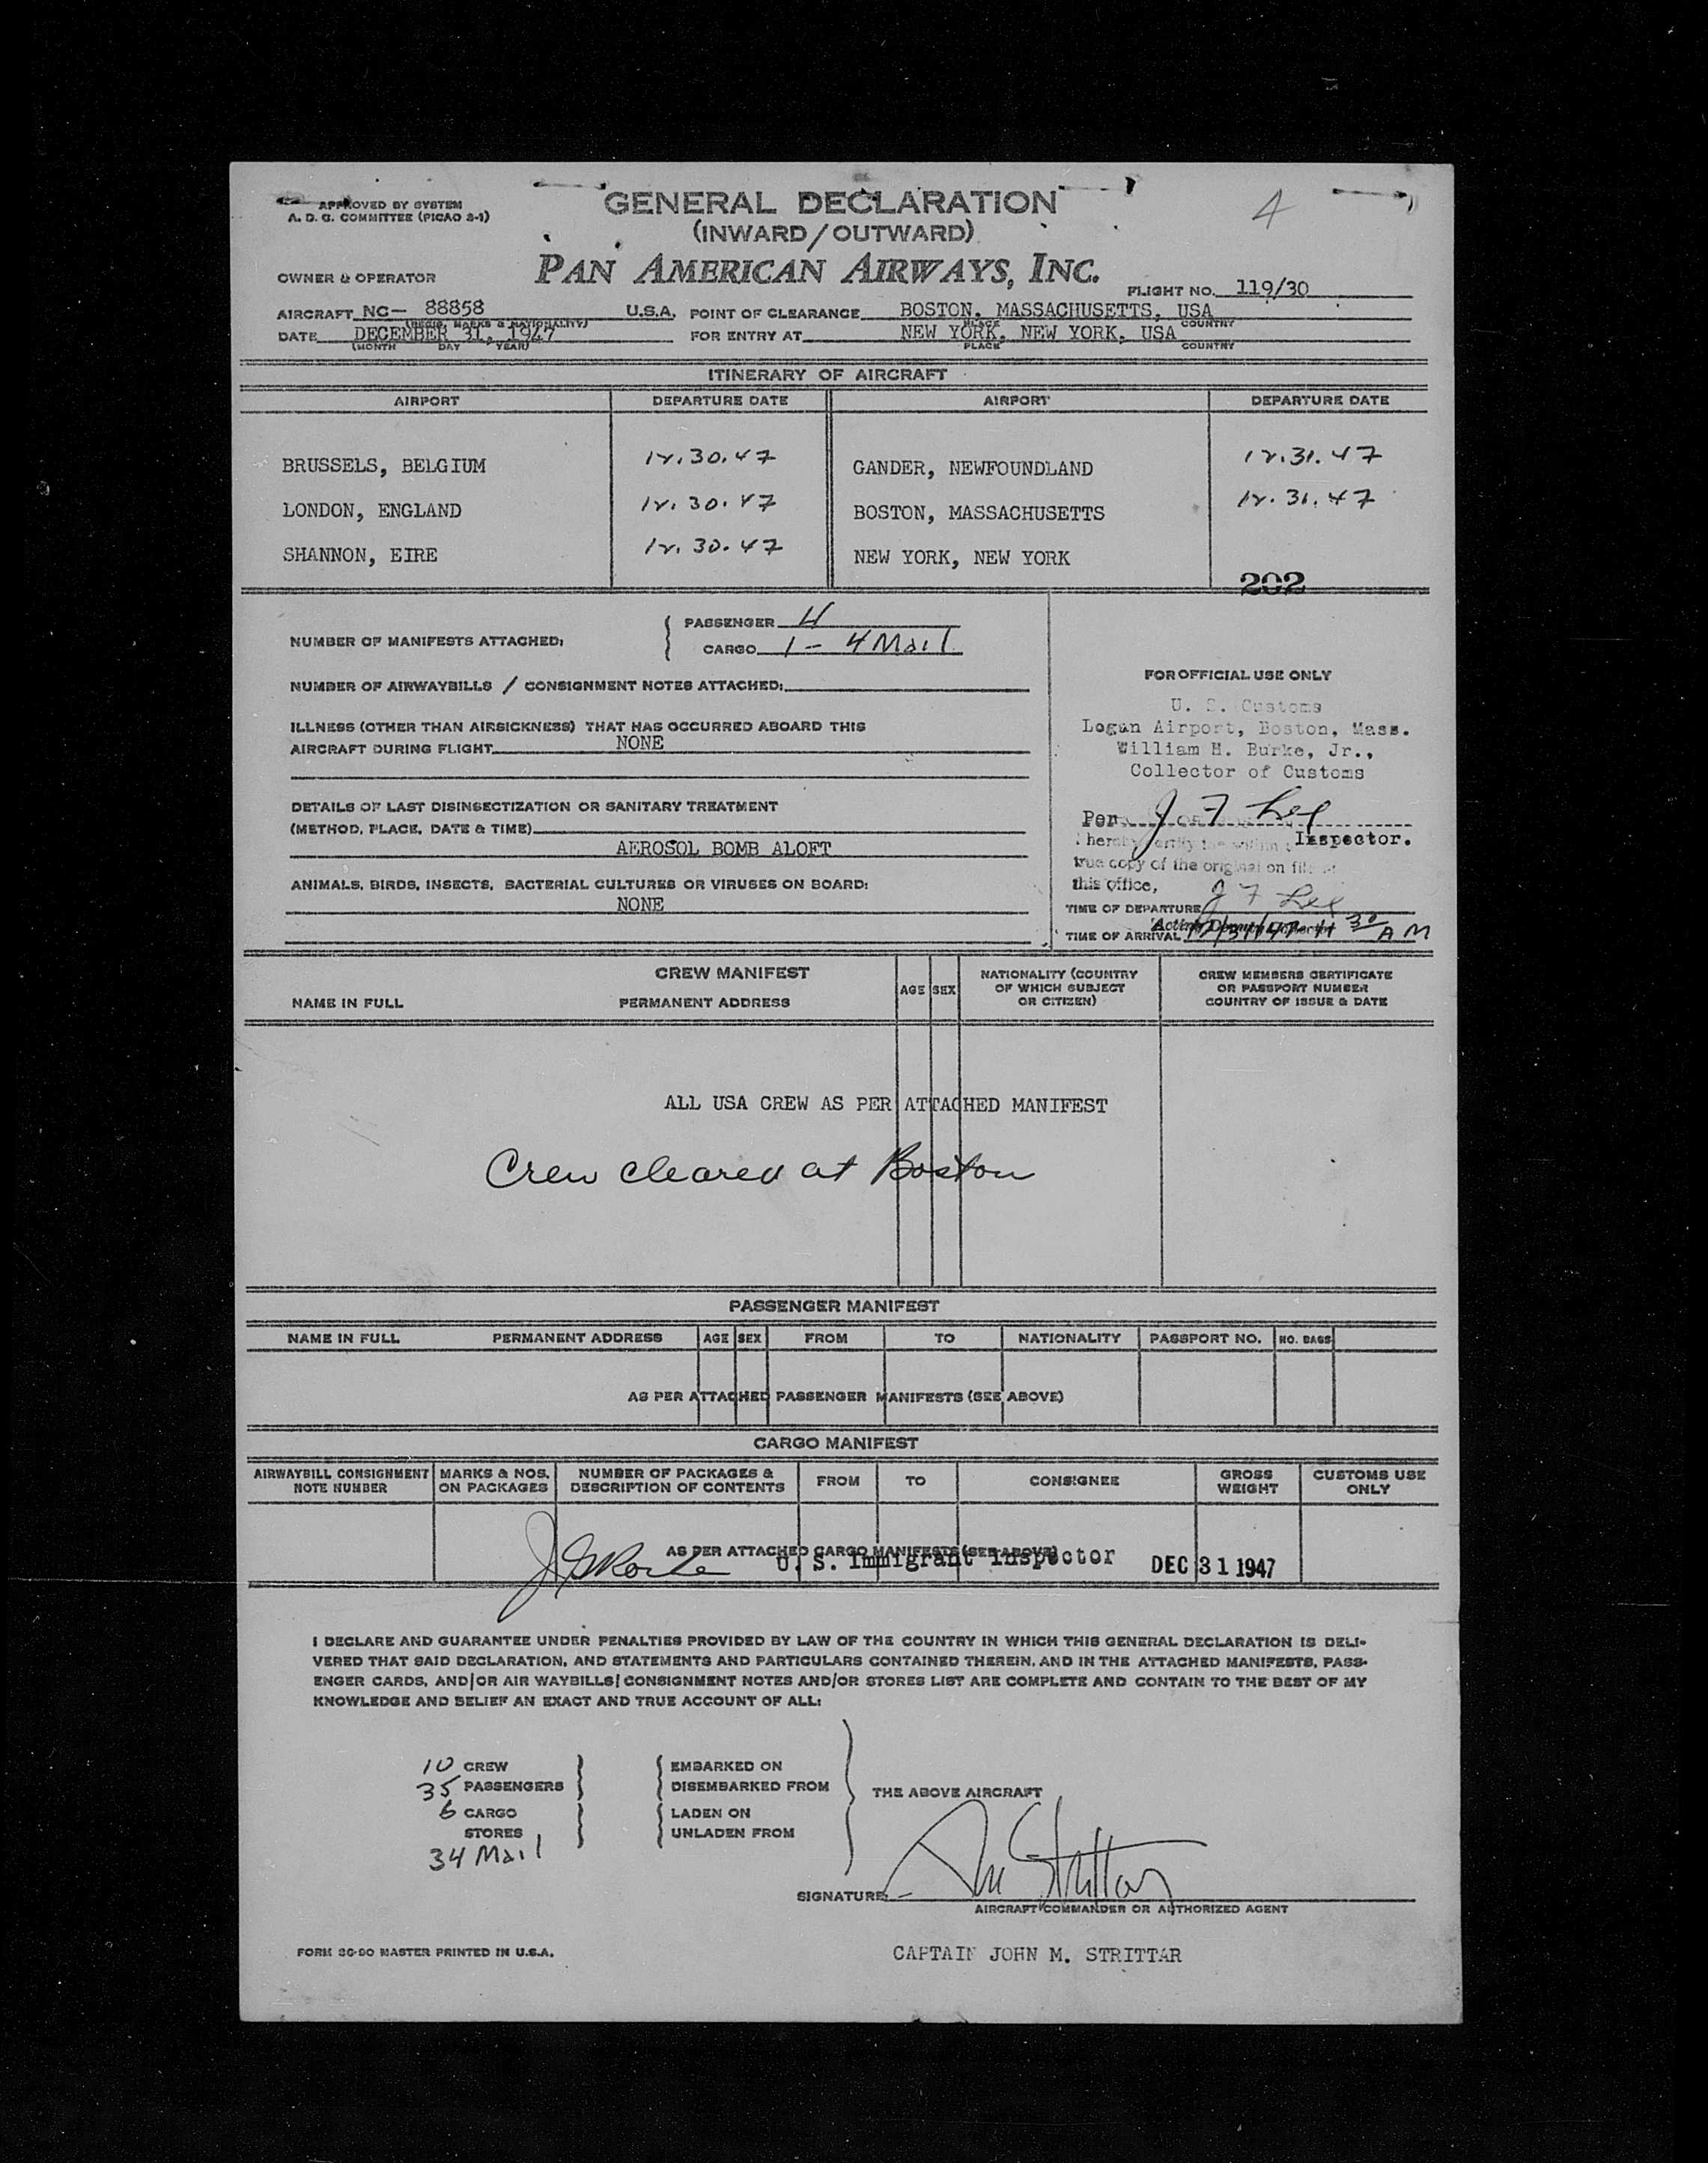 APPROVED BY SYSTEM
A. D. G. COMMITTEE (PICAO 2-1)
GENERAL DECLARATION
(INWARD/OUTWARD)
4
OWNER & OPERATOR
PAN AMERICAN AIRWAYS, INC.
FLIGHT NO. 119/30
AIRCRAFT NC- 88858 U.S.A. POINT OF CLEARANCE BOSTON, MASSACHUSETTS, USA
(REGIS. MARKS & NATIONALITY) PLACE COUNTRY
DATE DECEMBER 31, 1947 FOR ENTRY AT NEW YORK, NEW YORK, USA
(MONTH DAY YEAR) PLACE COUNTRY
ITINERARY OF AIRCRAFT
AIRPORT DEPARTURE DATE AIRPORT DEPARTURE DATE
BRUSSELS, BELGIUM 12.30.47 GANDER, NEWFOUNDLAND 12.31.47
LONDON, ENGLAND 12.30.47 BOSTON, MASSACHUSETTS 12.31.47
SHANNON, EIRE 12.30.47 NEW YORK, NEW YORK
202
NUMBER OF MANIFESTS ATTACHED: PASSENGER 4
CARGO 1 - 4 Mail
NUMBER OF AIRWAYBILLS / CONSIGNMENT NOTES ATTACHED:
ILLNESS (OTHER THAN AIRSICKNESS) THAT HAS OCCURRED ABOARD THIS
AIRCRAFT DURING FLIGHT NONE
DETAILS OF LAST DISINSECTIZATION OR SANITARY TREATMENT
(METHOD, PLACE, DATE & TIME)
AEROSOL BOMB ALOFT
ANIMALS, BIRDS, INSECTS, BACTERIAL CULTURES OR VIRUSES ON BOARD:
NONE
FOR OFFICIAL USE ONLY
U. S. Customs
Logan Airport, Boston, Mass.
William H. Burke, Jr.,
Collector of Customs
Per J F Lee
Inspector.
I hereby certify the within
true copy of the original on file
this office,
J F Lee
TIME OF DEPARTURE
Acting Deputy Collector
TIME OF ARRIVAL 12/31/47 11 30 A M
CREW MANIFEST
NAME IN FULL PERMANENT ADDRESS AGE SEX NATIONALITY (COUNTRY OF WHICH SUBJECT OR CITIZEN) CREW MEMBERS CERTIFICATE OR PASSPORT NUMBER COUNTRY OF ISSUE & DATE
ALL USA CREW AS PER ATTACHED MANIFEST
Crew cleared at Boston
PASSENGER MANIFEST
NAME IN FULL PERMANENT ADDRESS AGE SEX FROM TO NATIONALITY PASSPORT NO. NO. BAGS
AS PER ATTACHED PASSENGER MANIFESTS (SEE ABOVE)
CARGO MANIFEST
AIRWAYBILL CONSIGNMENT NOTE NUMBER MARKS & NOS. ON PACKAGES NUMBER OF PACKAGES & DESCRIPTION OF CONTENTS FROM TO CONSIGNEE GROSS WEIGHT CUSTOMS USE ONLY
AS PER ATTACHED CARGO MANIFESTS (SEE ABOVE)
U. S. Immigrant Inspector DEC 31 1947
I DECLARE AND GUARANTEE UNDER PENALTIES PROVIDED BY LAW OF THE COUNTRY IN WHICH THIS GENERAL DECLARATION IS DELI-
VERED THAT SAID DECLARATION, AND STATEMENTS AND PARTICULARS CONTAINED THEREIN, AND IN THE ATTACHED MANIFESTS, PASS-
ENGER CARDS, AND/OR AIR WAYBILLS/CONSIGNMENT NOTES AND/OR STORES LIST ARE COMPLETE AND CONTAIN TO THE BEST OF MY
KNOWLEDGE AND BELIEF AN EXACT AND TRUE ACCOUNT OF ALL:
10 CREW EMBARKED ON
35 PASSENGERS DISEMBARKED FROM THE ABOVE AIRCRAFT
6 CARGO LADEN ON
STORES UNLADEN FROM
34 Mail
SIGNATURE: Jm Strittar
AIRCRAFT COMMANDER OR AUTHORIZED AGENT
FORM 36-90 MASTER PRINTED IN U.S.A.
CAPTAIN JOHN M. STRITTAR